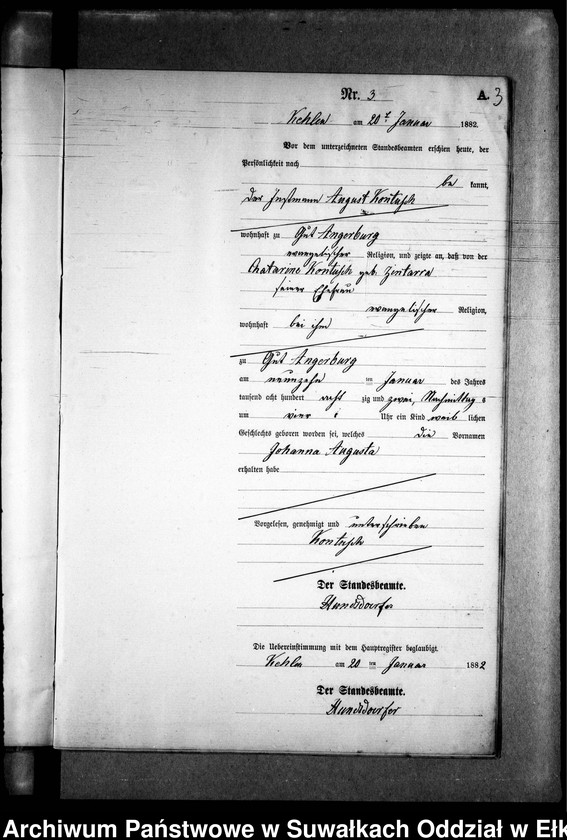 Nr. 3 A. 3
Kehlen am 20 t Januar 1882.
Vor dem unterzeichneten Standesbeamten erschien heute, der
Persönlichkeit nach
be kannt,
der Instmann August Kontusch
wohnhaft zu Gut Angerburg
evangelischer Religion, und zeigte an, daß von der
Chatarine Kontusch geb. Zintarra
seiner Ehefrau
evangelischer Religion,
wohnhaft bei ihm
zu Gut Angerburg
am neunzehn ten Januar des Jahres
tausend acht hundert acht zig und zwei, Nachmittag s
um vier Uhr ein Kind weib lichen
Geschlechts geboren worden sei, welches die Vornamen
Johanna Augusta
erhalten habe
Vorgelesen, genehmigt und unterschrieben
Kontusch
Der Standesbeamte.
Hundsdorfer
Die Uebereinstimmung mit dem Hauptregister beglaubigt.
Kehlen am 20 ten Januar 1882
Der Standesbeamte.
Hundsdorfer
Archiwum Państwowe w Suwałkach Oddział w Ełk